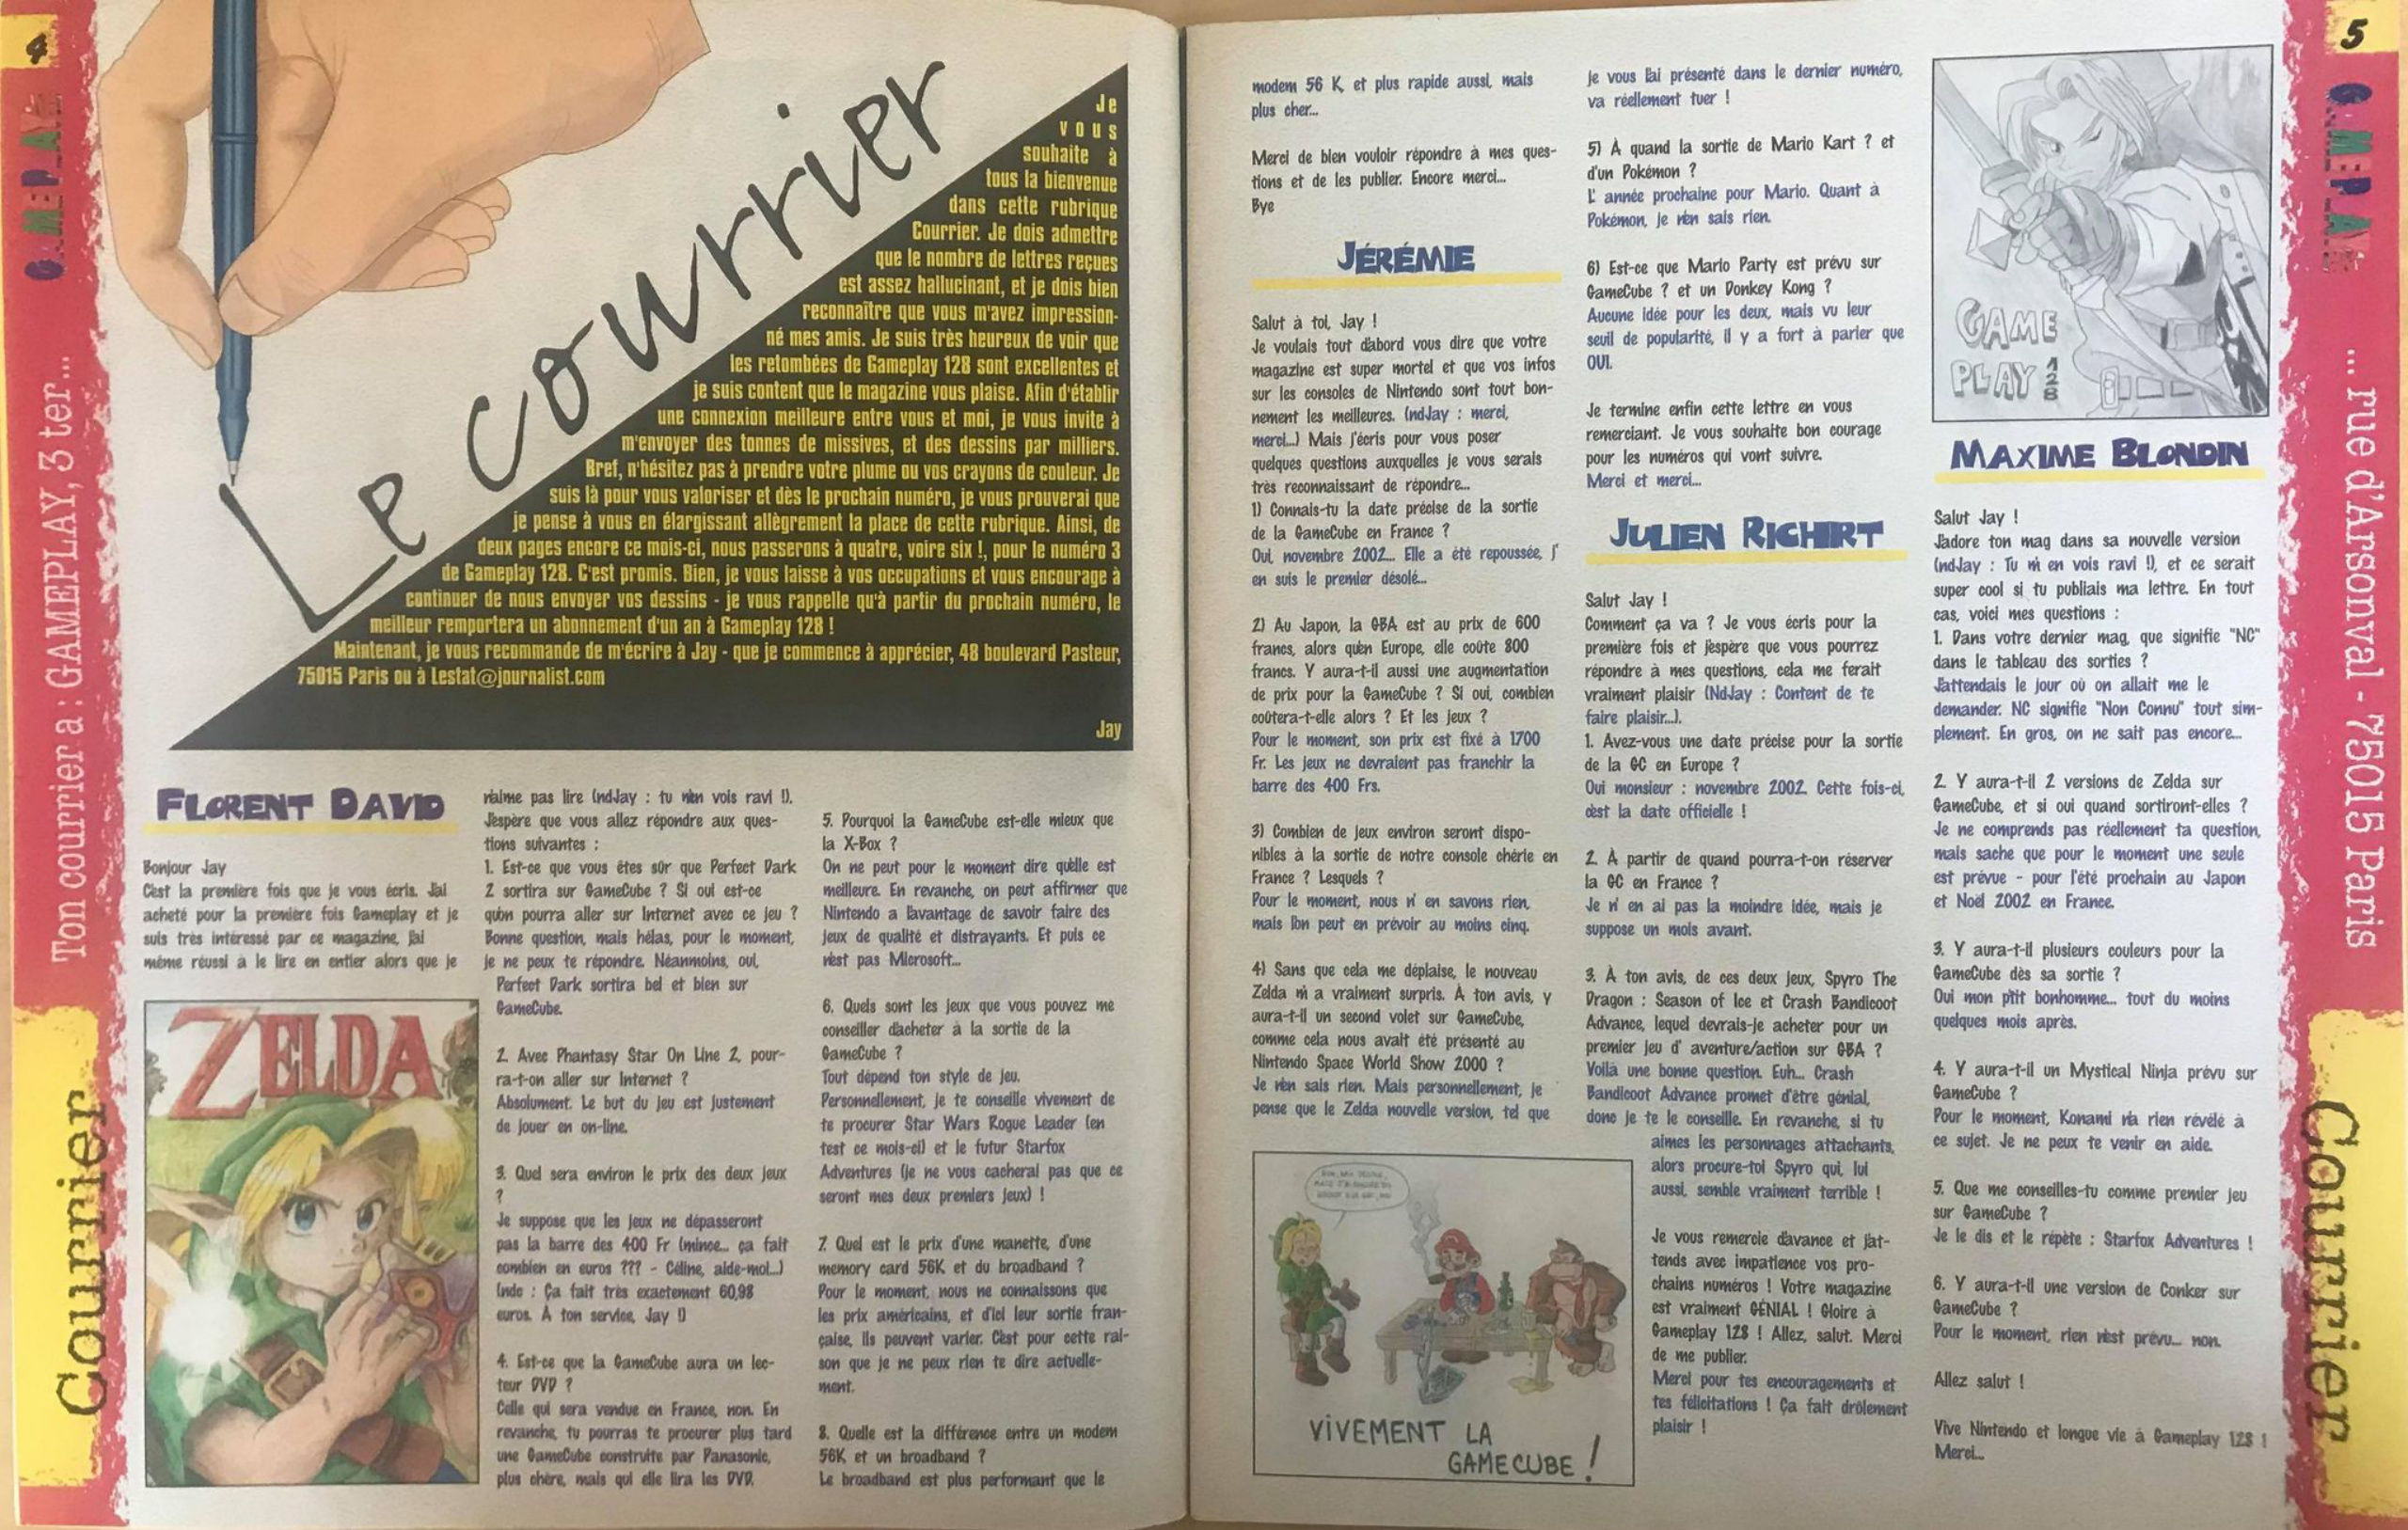 4
GAMEPLAY
Ton courrier a : GAMEPLAY, 3 ter...
Courrier
Le courrier
Je
vous
souhaite à
tous la bienvenue
dans cette rubrique
Courrier. Je dois admettre
que le nombre de lettres reçues
est assez hallucinant, et je dois bien
reconnaître que vous m'avez impression-
né mes amis. Je suis très heureux de voir que
les retombées de Gameplay 128 sont excellentes et
je suis content que le magazine vous plaise. Afin d'établir
une connexion meilleure entre vous et moi, je vous invite à
m'envoyer des tonnes de missives, et des dessins par milliers.
Bref, n'hésitez pas à prendre votre plume ou vos crayons de couleur. Je
suis là pour vous valoriser et dès le prochain numéro, je vous prouverai que
je pense à vous en élargissant allègrement la place de cette rubrique. Ainsi, de
deux pages encore ce mois-ci, nous passerons à quatre, voire six !, pour le numéro 3
de Gameplay 128. C'est promis. Bien, je vous laisse à vos occupations et vous encourage à
continuer de nous envoyer vos dessins - je vous rappelle qu'à partir du prochain numéro, le
meilleur remportera un abonnement d'un an à Gameplay 128 !
Maintenant, je vous recommande de m'écrire à Jay - que je commence à apprécier, 48 boulevard Pasteur,
75015 Paris ou à Lestat@journalist.com
Jay
FLORENT DAVID
Bonjour Jay
C'est la première fois que je vous écris. J'ai
acheté pour la première fois Gameplay et je
suis très intéressé par ce magazine, j'ai
même réussi à le lire en entier alors que je
ZELDA
n'aime pas lire (ndJay : tu m'en vois ravi !).
J'espère que vous allez répondre aux ques-
tions suivantes :
1. Est-ce que vous êtes sûr que Perfect Dark
2 sortira sur GameCube ? Si oui est-ce
qu'on pourra aller sur Internet avec ce jeu ?
Bonne question, mais hélas, pour le moment,
je ne peux te répondre. Néanmoins, oui,
Perfect Dark sortira bel et bien sur
GameCube.
2. Avec Phantasy Star On Line 2, pour-
ra-t-on aller sur Internet ?
Absolument. Le but du jeu est justement
de jouer en on-line.
3. Quel sera environ le prix des deux jeux
?
Je suppose que les jeux ne dépasseront
pas la barre des 400 Fr (mince... ça fait
combien en euros ??? - Céline, aide-moi...)
(ndc : Ça fait très exactement 60,98
euros. À ton service, Jay !)
4. Est-ce que la GameCube aura un lec-
teur DVD ?
Celle qui sera vendue en France, non. En
revanche, tu pourras te procurer plus tard
une GameCube construite par Panasonic,
plus chère, mais qui elle lira les DVD.
5. Pourquoi la GameCube est-elle mieux que
la X-Box ?
On ne peut pour le moment dire qu'elle est
meilleure. En revanche, on peut affirmer que
Nintendo a l'avantage de savoir faire des
jeux de qualité et distrayants. Et puis ce
n'est pas Microsoft...
6. Quels sont les jeux que vous pouvez me
conseiller d'acheter à la sortie de la
GameCube ?
Tout dépend ton style de jeu.
Personnellement, je te conseille vivement de
te procurer Star Wars Rogue Leader (en
test ce mois-ci) et le futur Starfox
Adventures (je ne vous cacherai pas que ce
seront mes deux premiers jeux) !
7. Quel est le prix d'une manette, d'une
memory card 56K et du broadband ?
Pour le moment, nous ne connaissons que
les prix américains, et d'ici leur sortie fran-
çaise, ils peuvent varier. C'est pour cette rai-
son que je ne peux rien te dire actuelle-
ment.
8. Quelle est la différence entre un modem
56K et un broadband ?
Le broadband est plus performant que le
modem 56 K, et plus rapide aussi, mais
plus cher...
Merci de bien vouloir répondre à mes ques-
tions et de les publier. Encore merci...
Bye
JÉRÉMIE
Salut à toi, Jay !
Je voulais tout d'abord vous dire que votre
magazine est super mortel et que vos infos
sur les consoles de Nintendo sont tout bon-
nement les meilleures. (ndJay : merci,
merci...) Mais j'écris pour vous poser
quelques questions auxquelles je vous serais
très reconnaissant de répondre...
1) Connais-tu la date précise de la sortie
de la GameCube en France ?
Oui, novembre 2002... Elle a été repoussée, j'
en suis le premier désolé...
2) Au Japon, la GBA est au prix de 600
francs, alors qu'en Europe, elle coûte 800
francs. Y aura-t-il aussi une augmentation
de prix pour la GameCube ? Si oui, combien
coûtera-t-elle alors ? Et les jeux ?
Pour le moment, son prix est fixé à 1700
Fr. Les jeux ne devraient pas franchir la
barre des 400 Frs.
3) Combien de jeux environ seront dispo-
nibles à la sortie de notre console chérie en
France ? Lesquels ?
Pour le moment, nous n' en savons rien,
mais l'on peut en prévoir au moins cinq.
4) Sans que cela me déplaise, le nouveau
Zelda m' a vraiment surpris. À ton avis, y
aura-t-il un second volet sur GameCube,
comme cela nous avait été présenté au
Nintendo Space World Show 2000 ?
Je n'en sais rien. Mais personnellement, je
pense que le Zelda nouvelle version, tel que
VIVEMENT LA
GAMECUBE !
je vous l'ai présenté dans le dernier numéro,
va réellement tuer !
5) À quand la sortie de Mario Kart ? et
d'un Pokémon ?
L' année prochaine pour Mario. Quant à
Pokémon, je n'en sais rien.
6) Est-ce que Mario Party est prévu sur
GameCube ? et un Donkey Kong ?
Aucune idée pour les deux, mais vu leur
seuil de popularité, il y a fort à parier que
OUI.
Je termine enfin cette lettre en vous
remerciant. Je vous souhaite bon courage
pour les numéros qui vont suivre.
Merci et merci...
JULIEN RICHIRT
Salut Jay !
Comment ça va ? Je vous écris pour la
première fois et j'espère que vous pourrez
répondre à mes questions, cela me ferait
vraiment plaisir (NdJay : Content de te
faire plaisir...).
1. Avez-vous une date précise pour la sortie
de la GC en Europe ?
Oui monsieur : novembre 2002. Cette fois-ci,
c'est la date officielle !
2. À partir de quand pourra-t-on réserver
la GC en France ?
Je n' en ai pas la moindre idée, mais je
suppose un mois avant.
3. À ton avis, de ces deux jeux, Spyro The
Dragon : Season of Ice et Crash Bandicoot
Advance, lequel devrais-je acheter pour un
premier jeu d' aventure/action sur GBA ?
Voilà une bonne question. Euh... Crash
Bandicoot Advance promet d'être génial,
donc je te le conseille. En revanche, si tu
aimes les personnages attachants,
alors procure-toi Spyro qui, lui
aussi, semble vraiment terrible !
Je vous remercie d'avance et j'at-
tends avec impatience vos pro-
chains numéros ! Votre magazine
est vraiment GÉNIAL ! Gloire à
Gameplay 128 ! Allez, salut. Merci
de me publier.
Merci pour tes encouragements et
tes félicitations ! Ça fait drôlement
plaisir !
GAME
PLAY 128
MAXIME BLONDIN
Salut Jay !
J'adore ton mag dans sa nouvelle version
(ndJay : Tu m' en vois ravi !), et ce serait
super cool si tu publiais ma lettre. En tout
cas, voici mes questions :
1. Dans votre dernier mag, que signifie "NC"
dans le tableau des sorties ?
J'attendais le jour où on allait me le
demander. NC signifie "Non Connu" tout sim-
plement. En gros, on ne sait pas encore...
2. Y aura-t-il 2 versions de Zelda sur
GameCube, et si oui quand sortiront-elles ?
Je ne comprends pas réellement ta question,
mais sache que pour le moment une seule
est prévue - pour l'été prochain au Japon
et Noël 2002 en France.
3. Y aura-t-il plusieurs couleurs pour la
GameCube dès sa sortie ?
Oui mon p'tit bonhomme... tout du moins
quelques mois après.
4. Y aura-t-il un Mystical Ninja prévu sur
GameCube ?
Pour le moment, Konami n'a rien révélé à
ce sujet. Je ne peux te venir en aide.
5. Que me conseilles-tu comme premier jeu
sur GameCube ?
Je le dis et le répète : Starfox Adventures !
6. Y aura-t-il une version de Conker sur
GameCube ?
Pour le moment, rien n'est prévu... non.
Allez salut !
Vive Nintendo et longue vie à Gameplay 128 !
Merci...
5
GAMEPLAY
... rue d'Arsonval - 75015 Paris
Courrier